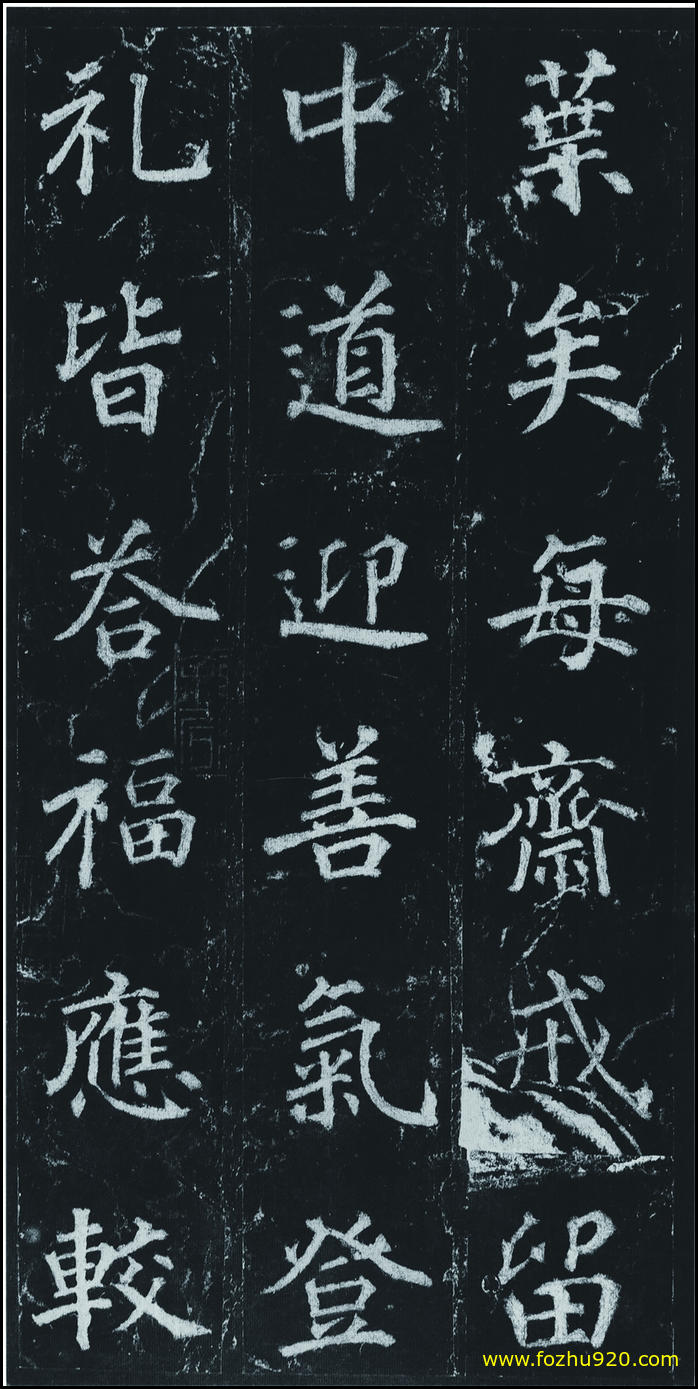 葉矣每齋戒留
中道迎善氣登
礼皆荅福應較
www.fozhu920.com